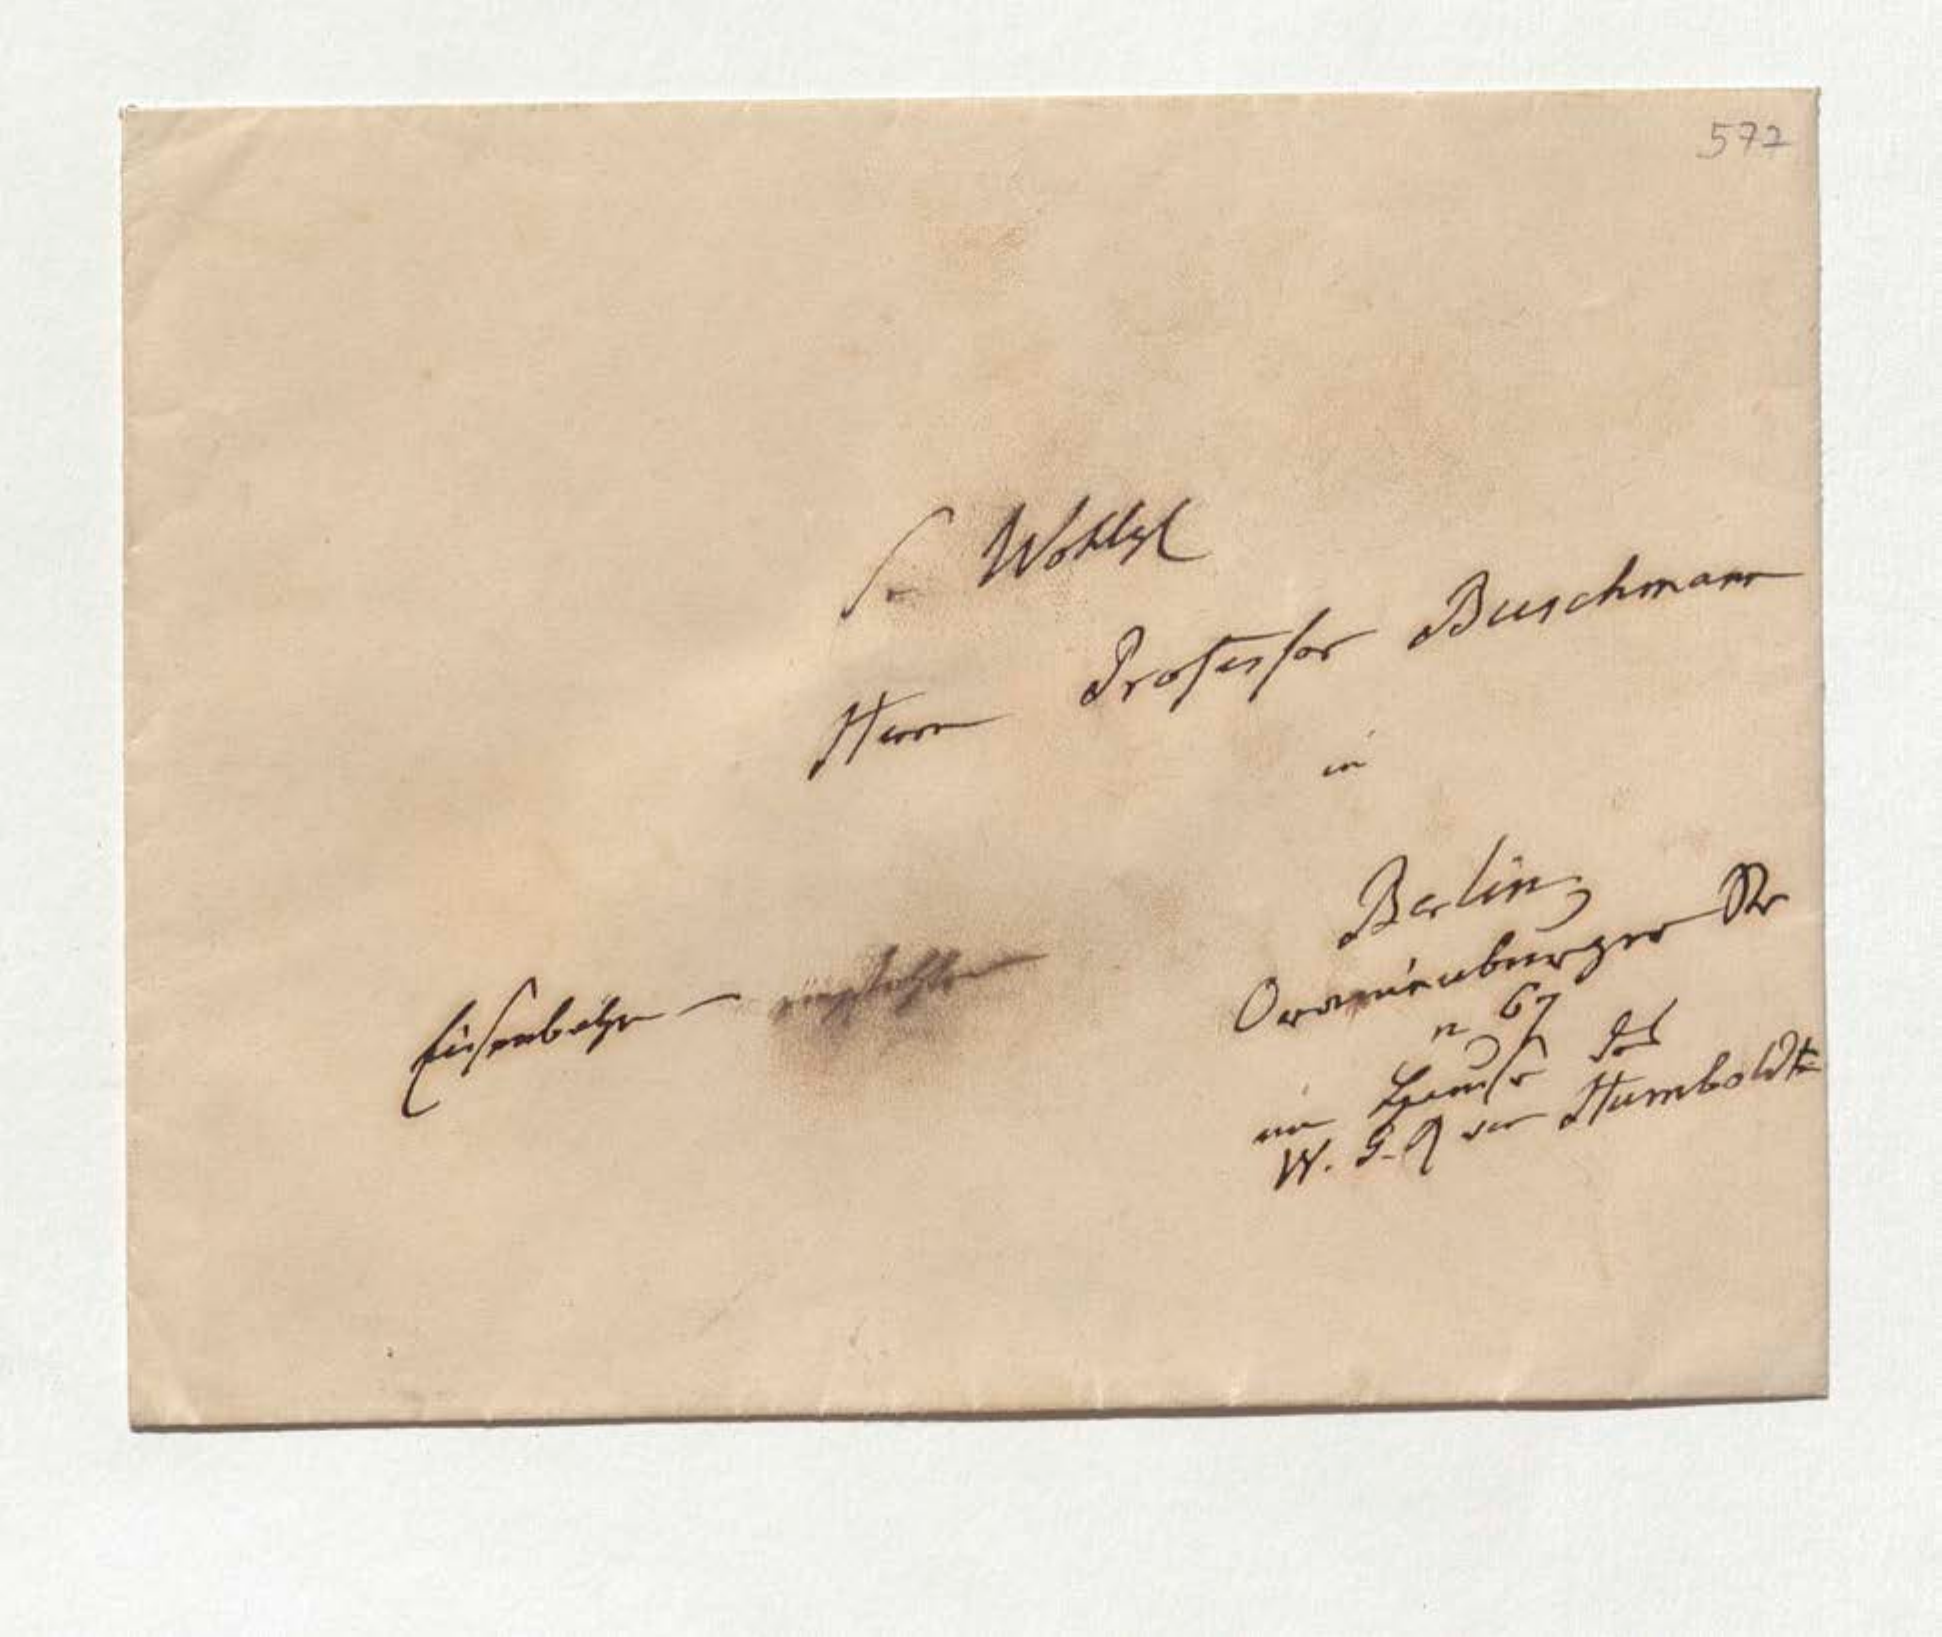 572
Sr Wohlgb
Herrn Professor Buschmann
in
Berlin,
Oranienburger Str
n 67
im Hause des
W. G. R von Humboldt
Eisenbahn —